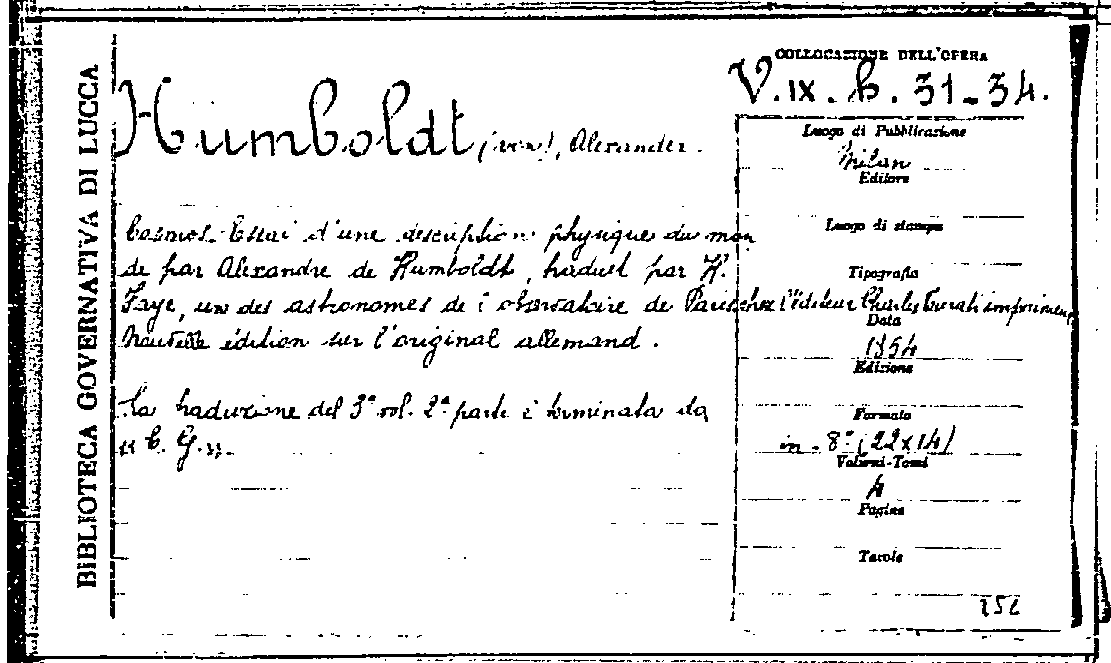 BIBLIOTECA GOVERNATIVA DI LUCCA
Humboldt (von), Alexander.
Cosmos. Essai d'une description physique du mon
de par Alexandre de Humboldt, traduct par H.
Faye, un des astronomes de l'observatoire de Paris chez l'éditeur Charles Turati imprimeur
Nouvelle édition sur l'original allemand.
La traduzione del 3° vol. 2ª parte è terminata da
"C. G.".
COLLOCAZIONE DELL'OPERA
V. IX. b. 31-34.
Luogo di Pubblicazione
Milan
Editore
Luogo di stampa
Tipografia
Data
1854
Edizione
Formato
in-8° (22x14)
Volumi-Tomi
4
Pagine
Tavole